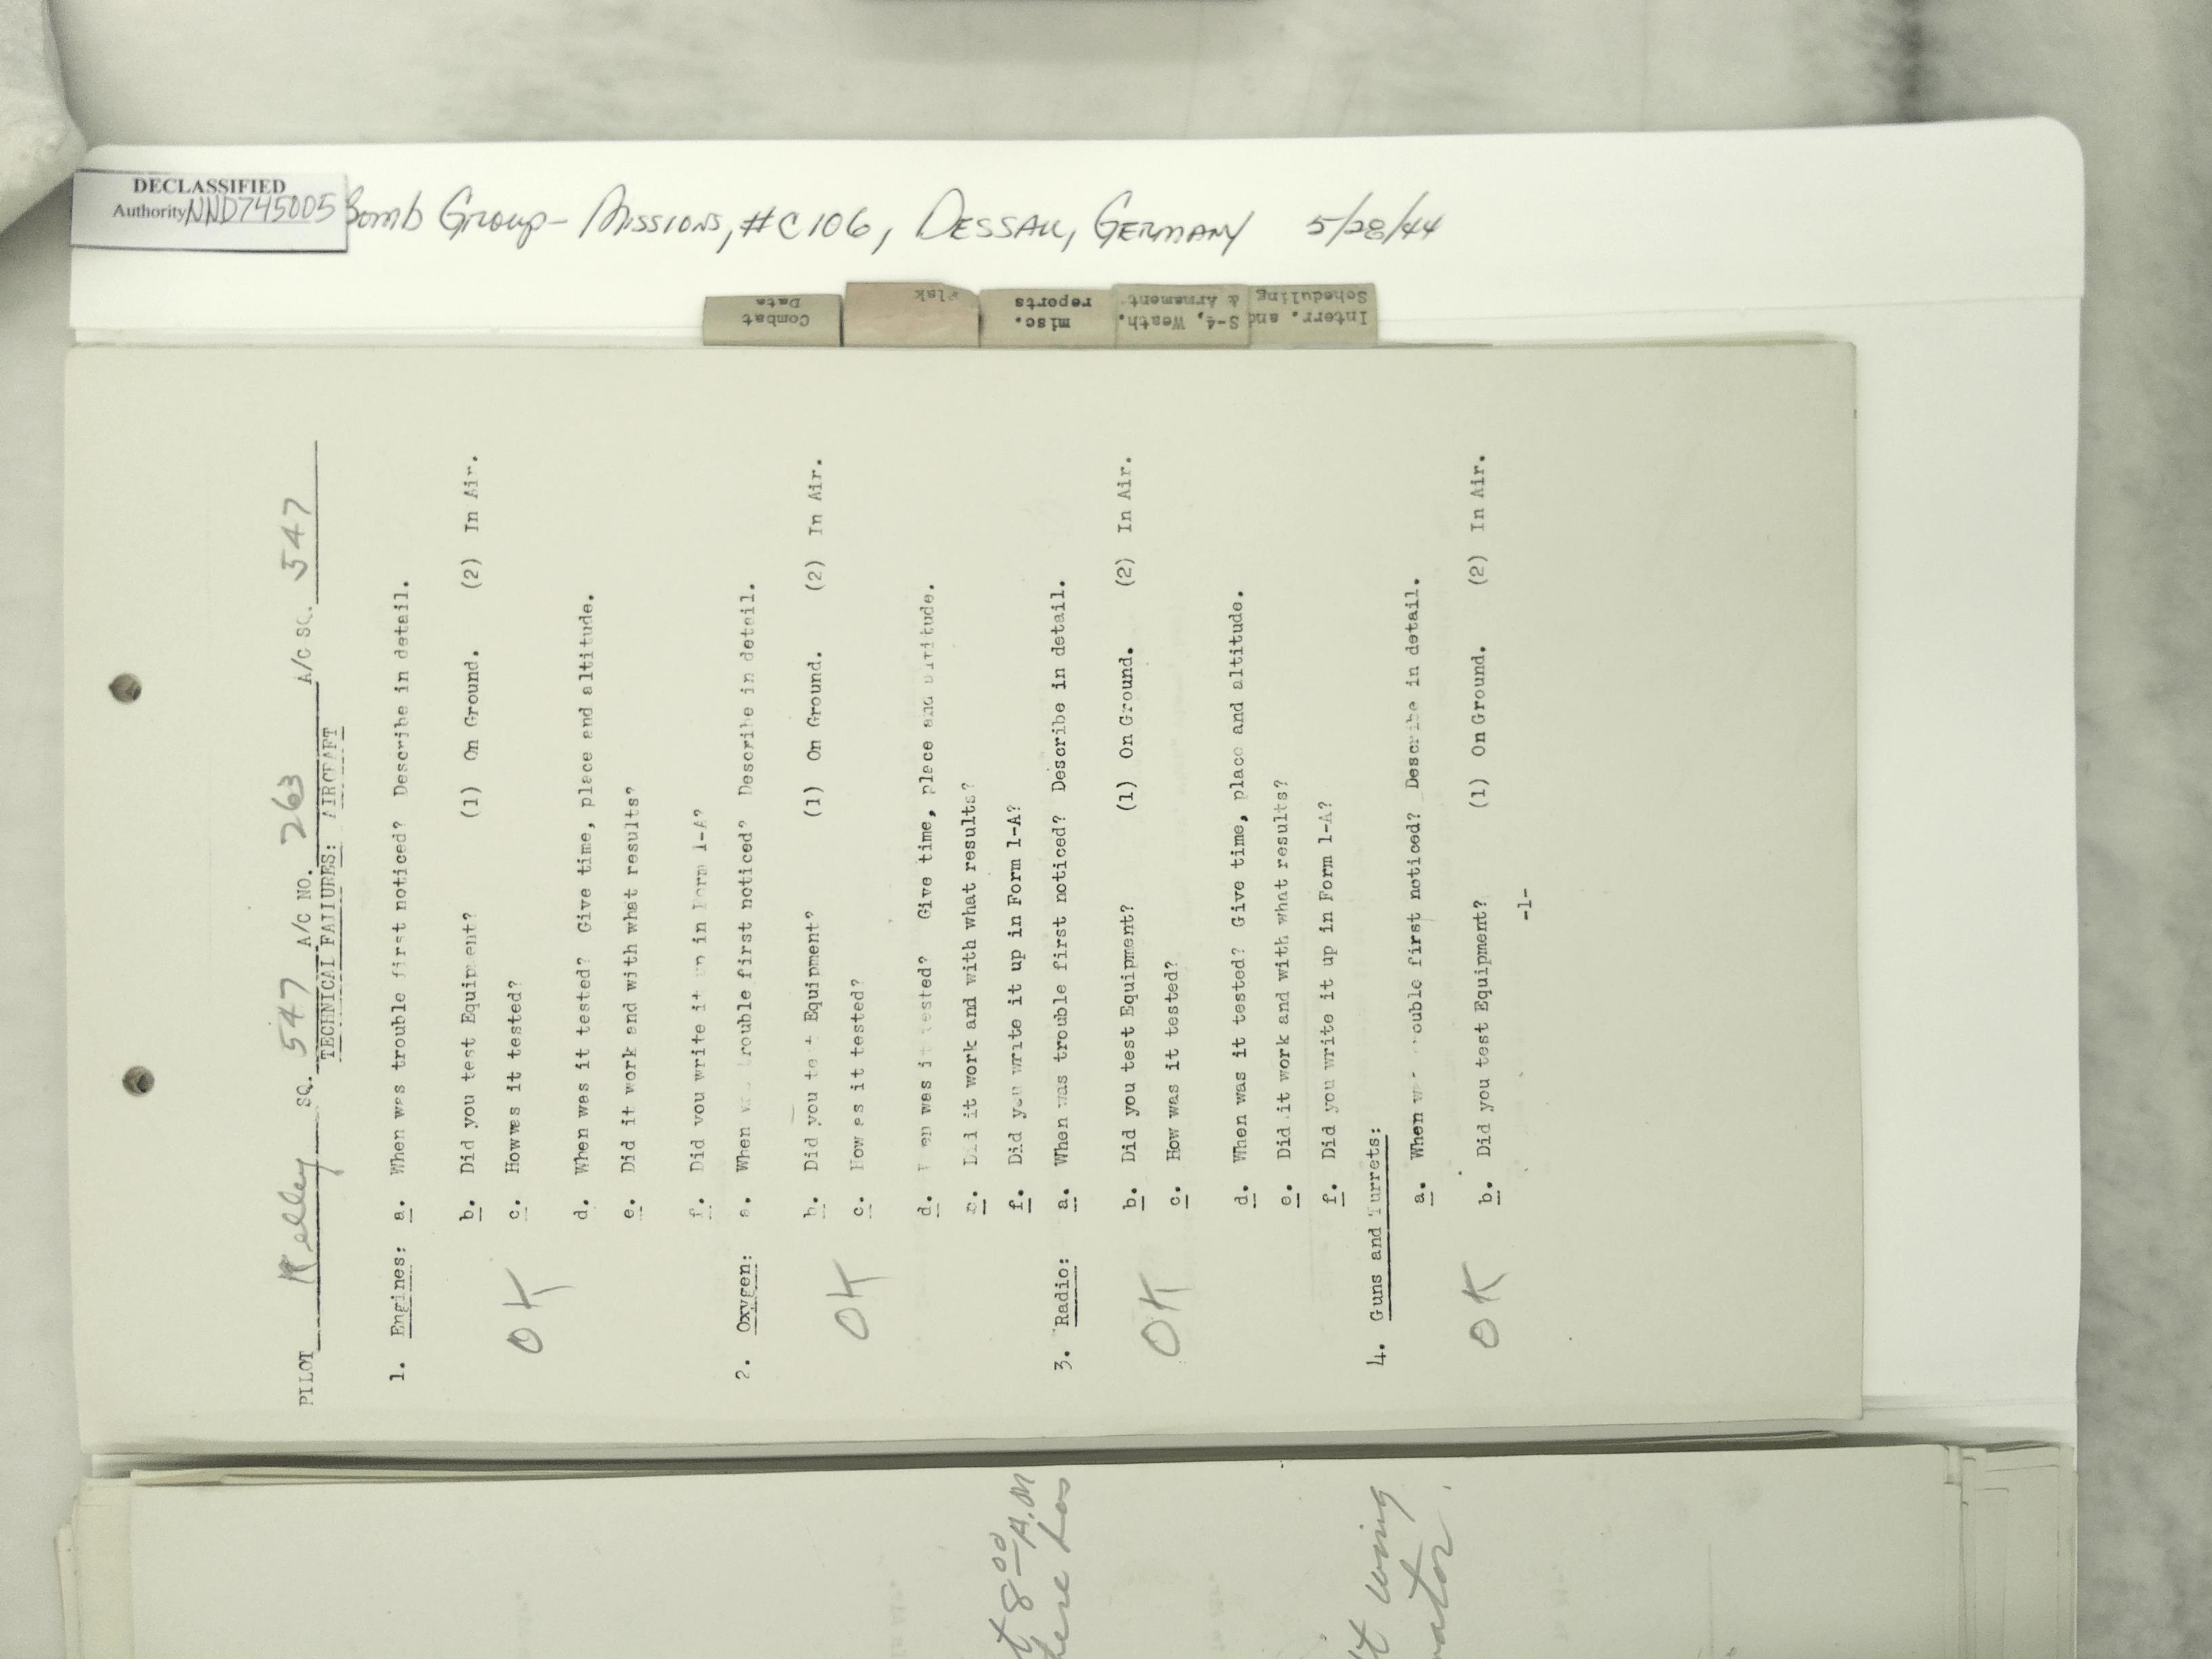 DECLASSIFIED
Authority NND745005
Bomb Group - Missions, #C106, Dessau, Germany 5/28/44
Combat Data
Flak
misc. reports
S-4, Weath. & Armament
Interr. and Scheduling
PILOT Kelley SQ. 547 A/C NO. 263 A/C SQ. 547
TECHNICAL FAILURES: AIRCRAFT
1. Engines: a. When was trouble first noticed? Describe in detail.
b. Did you test Equipment? (1) On Ground. (2) In Air.
c. How was it tested?
OK
d. When was it tested? Give time, place and altitude.
e. Did it work and with what results?
f. Did you write it up in Form 1-A?
2. Oxygen: a. When was trouble first noticed? Describe in detail.
b. Did you test Equipment? (1) On Ground. (2) In Air.
c. How was it tested?
OK
d. When was it tested? Give time, place and altitude.
e. Did it work and with what results?
f. Did you write it up in Form 1-A?
3. Radio: a. When was trouble first noticed? Describe in detail.
b. Did you test Equipment? (1) On Ground. (2) In Air.
c. How was it tested?
OK
d. When was it tested? Give time, place and altitude.
e. Did it work and with what results?
f. Did you write it up in Form 1-A?
4. Guns and Turrets:
a. When was trouble first noticed? Describe in detail.
b. Did you test Equipment? (1) On Ground. (2) In Air.
OK
-1-
8:00 A.M
here has
wing